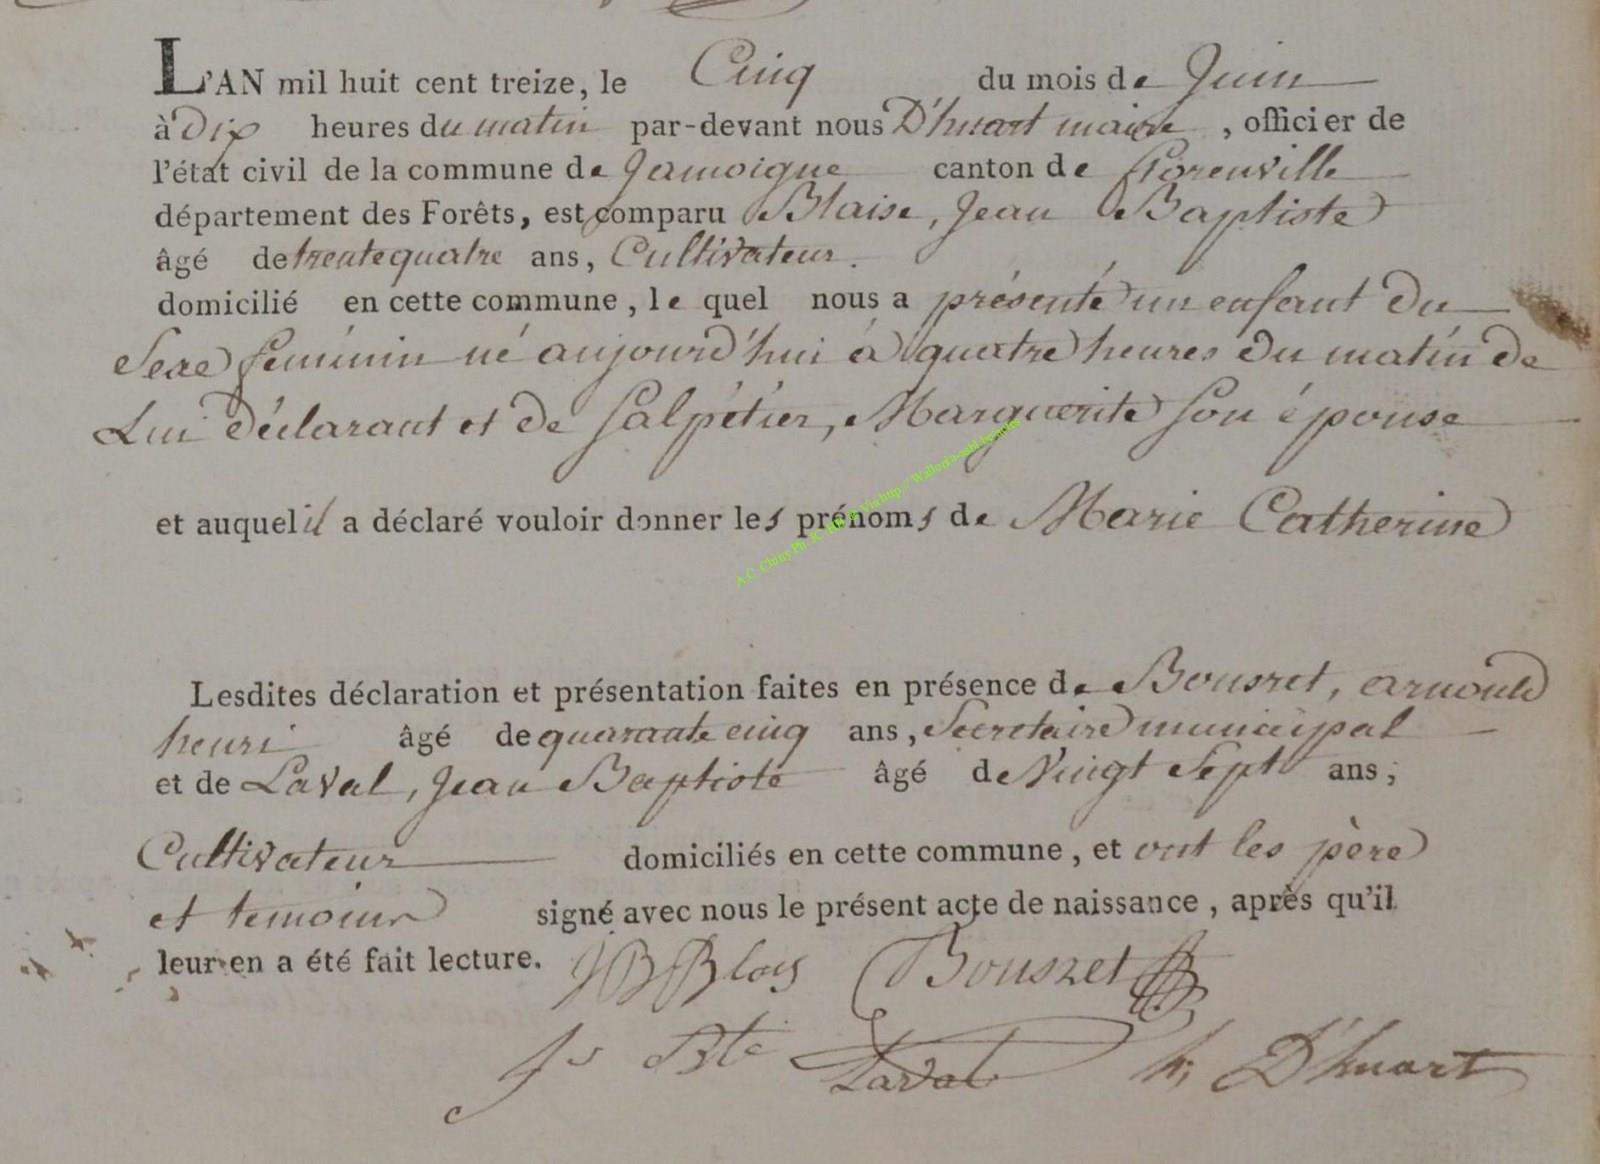 L'AN mil huit cent treize, le Cinq du mois de Juin
à Dix heures du matin par-devant nous D'huart maire, officier de
l'état civil de la commune de Jamoigne canton de florenville
département des Forêts, est comparu Blaise, Jean Baptiste
âgé de trente quatre ans, Cultivateur.
domicilié en cette commune, le quel nous a présenté un enfant du
Sexe féminin né aujourd'hui à quatre heures du matin de
Lui déclarant et de Salpétier, Marguerite son épouse
et auquel il a déclaré vouloir donner les prénoms de Marie Catherine
Lesdites déclaration et présentation faites en présence de Bousret, arnould
henri âgé de quarante cinq ans, Secretaire municipal
et de Laval, Jean Baptiste âgé de Vingt Sept ans,
Cultivateur domiciliés en cette commune, et ont les père
et temoins signé avec nous le présent acte de naissance, après qu'il
leur en a été fait lecture. JB Blais Bousret
Jn Bte Laval h, D'huart
A.C. Chiny Ph.